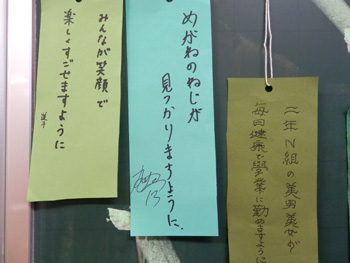 みんなが笑顔で
楽しくすごせますように
めがねのねじが
見つかりますように.
二年N組の美男美女が
毎日健康で學業に勤めますように